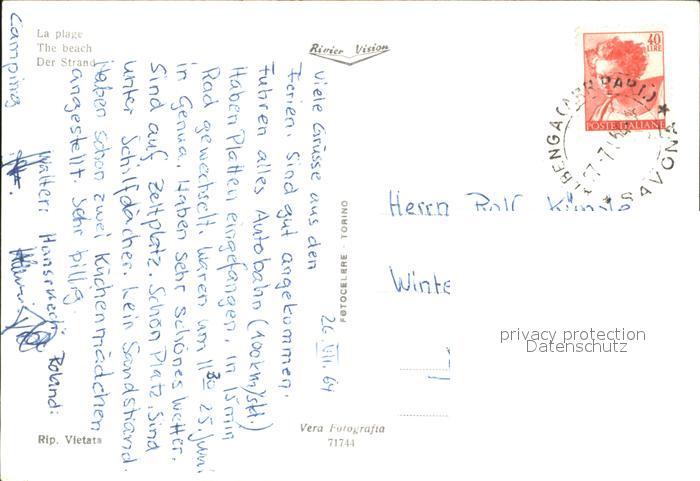 La plage
The beach
Der Strand
Rivier Vision
40
LIRE
POSTE ITALIANE
ALBENGA (ARR. PART.)
SAVONA
26. VII. 64
Viele Grüsse aus den
Ferien. Sind gut angekommen.
Fuhren alles Autobahn (100 km/std.)
Haben Platten eingefangen, in 15 min
Rad gewechselt. Waren um 11 30 25. Juni
in Genua. Haben sehr schönes Wetter.
Sind auf Zeltplatz. Schön Platz. Sind
unter Schilfdächer. Kein Sandstrand.
Haben schon zwei Küchenmädchen
angestellt. Sehr billig.
Walter: Hansruedi: Roland:
Camping
Herrn Rolf Künzle
Winte
privacy protection
Datenschutz
FOTOCELERE - TORINO
Rip. Vietata
Vera Fotografia
71744